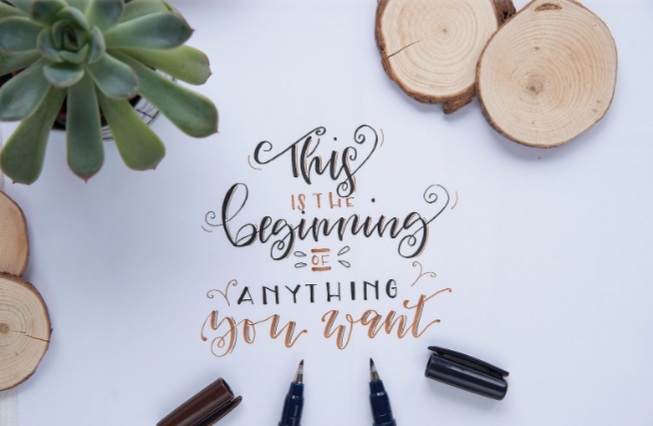 This
IS THE
beginning
OF
ANYTHING
you want